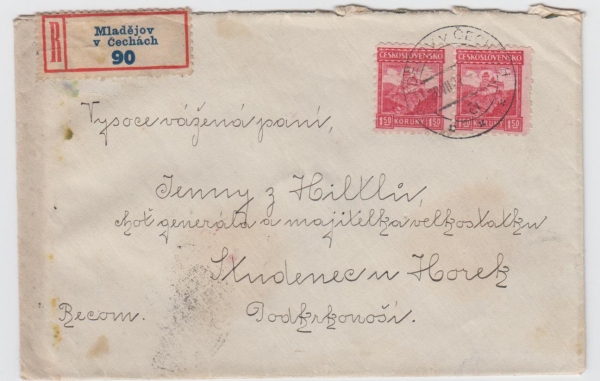 R
Mladějov
v Čechách
90
ČESKOSLOVENSKO ČESKOSLOVENSKO
1·50 KORUNY 1·50 1·50 KORUNY 1·50
V ČECHÁCH
Vysoce vážená paní,
Jenny z
choť generála a majitelka velkostatku
Studenec u Horek
Recom. Podkrkonoší.